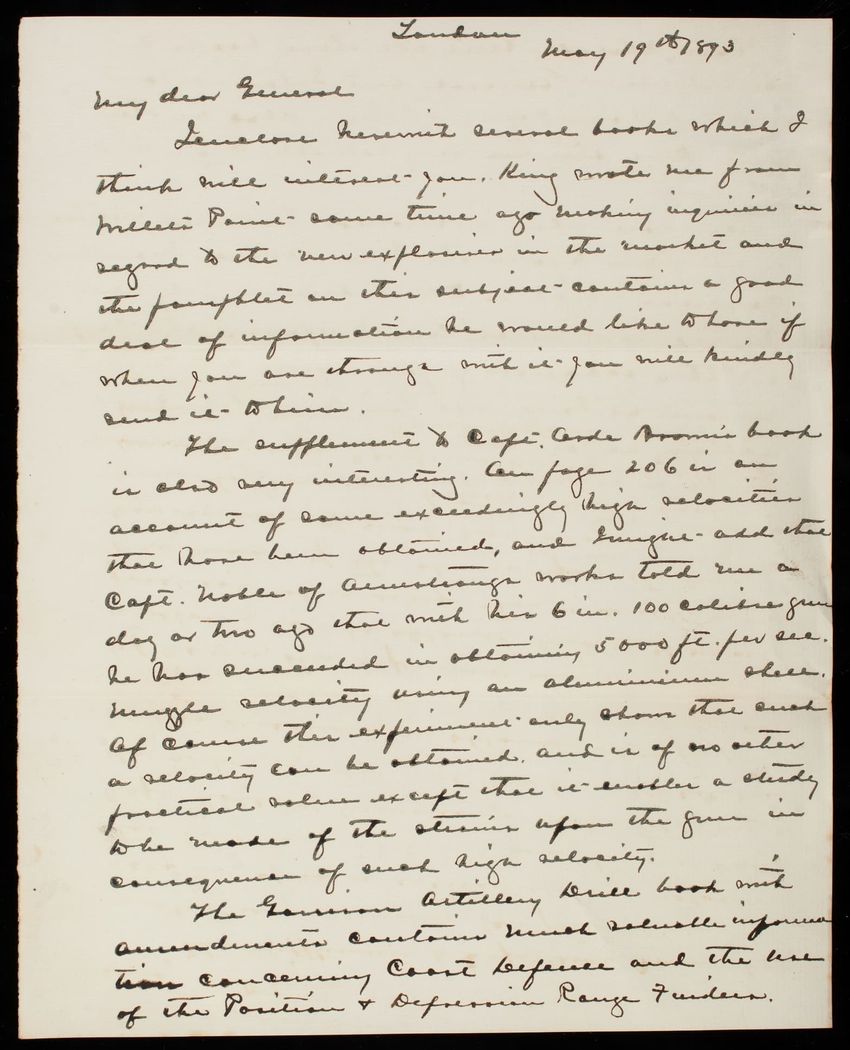 London
May 19th 1893
My dear General
I enclose herewith several books which I
think will interest you. King wrote me from
Willets Point some time ago making inquiries in
regard to the new explosives in the market and
the pamphlet on this subject contains a good
deal of information he would like to have if
when you are through with it you will kindly
send it to him.
The supplement to Capt. Orde Browne's book
is also very interesting. On page 206 is an
account of some exceedingly high velocities
that have been obtained, and I might add that
Capt. Noble of Armstrongs works told me a
day or two ago that with his 6 in. 100 calibre gun
he has succeeded in obtaining 5000 ft. per sec.
muzzle velocity using an aluminium shell.
Of course this experiment only shows that such
a velocity can be obtained, and is of no other
practical value except that it enables a study
to be made of the strains upon the gun in
consequence of such high velocity.
The Garrison Artillery Drill book with
amendments contains much valuable informa
tion concerning Coast Defence and the use
of the Position & Depression Range Finders.